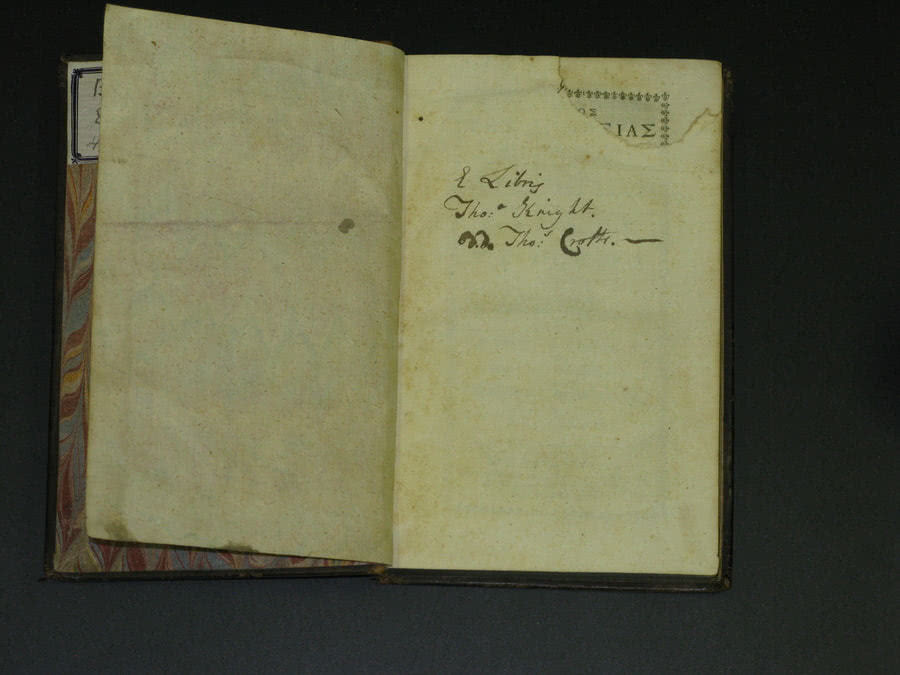 ΟΣ
ΣΙΑΣ
E Libris
Tho:s Knight.
d.d. Tho:s Crofts.